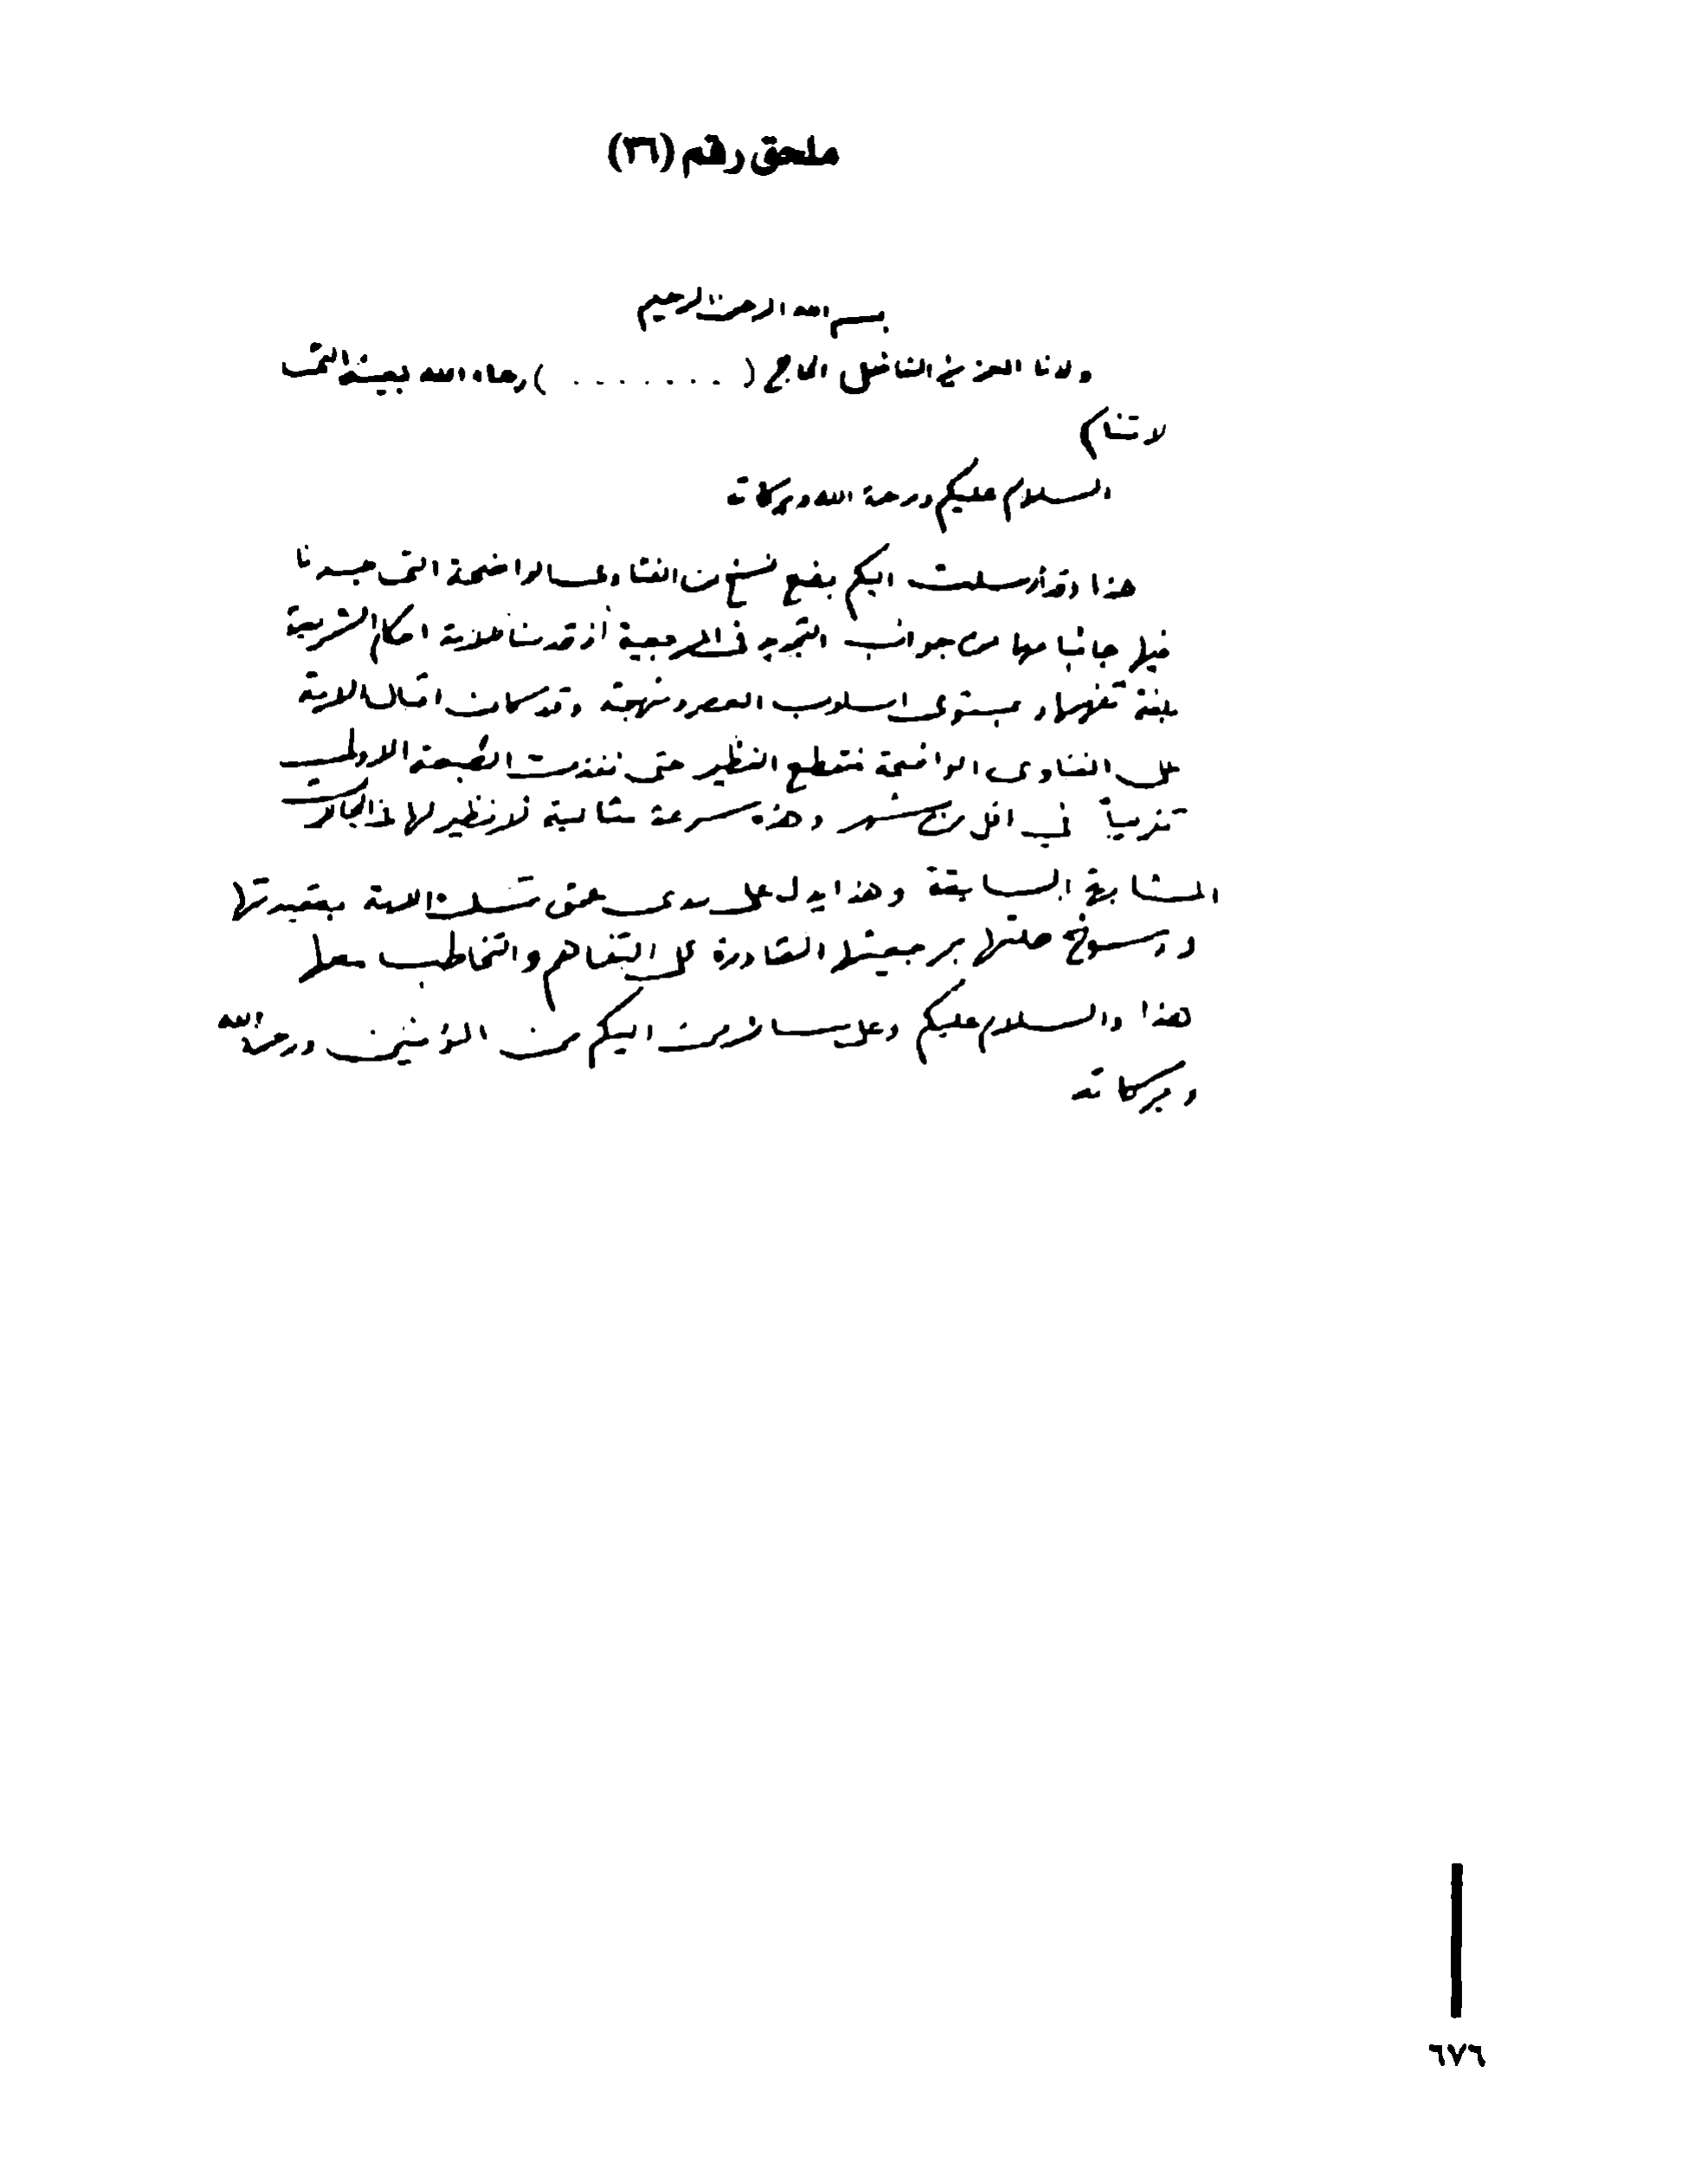 ملحق رقم (٣٦)
بسم الله الرحمن الرحيم
ولدنا العزيز الفاضل الحاج (. . . . . . . .) رعاه الله بعينه التي
لا تنام
السلام عليكم ورحمة الله وبركاته
هذا وقد أرسلت اليكم بضع نسخ من الفتاوى الواضحة التي جسدنا
فيها جانبا مهما من جوانب التجديد في المرجعية أذ قدمنا للامة احكام الشريعة
بلغة تفهمها وبمستوى اسلوب العصر ومنهجة وقد كان اقبال الامة
على الفتاوى الواضحة منقطع النظير حتى نفذت الطبعة الاولى
تقريباً في اقل من شهر وهذه سرعة مثالية لا نظير لها في الحالات
المشابهة السابقة وهذا يدل على مدى عمق تمسك الامة بعقيدتها
ورسوخ صلتها بمرجعيتها القادرة على التفاهم والتخاطب معها
هذا والسلام عليكم وعلى سائر من اليكم من المؤمنين ورحمة الله
وبركاته
٦٧٦